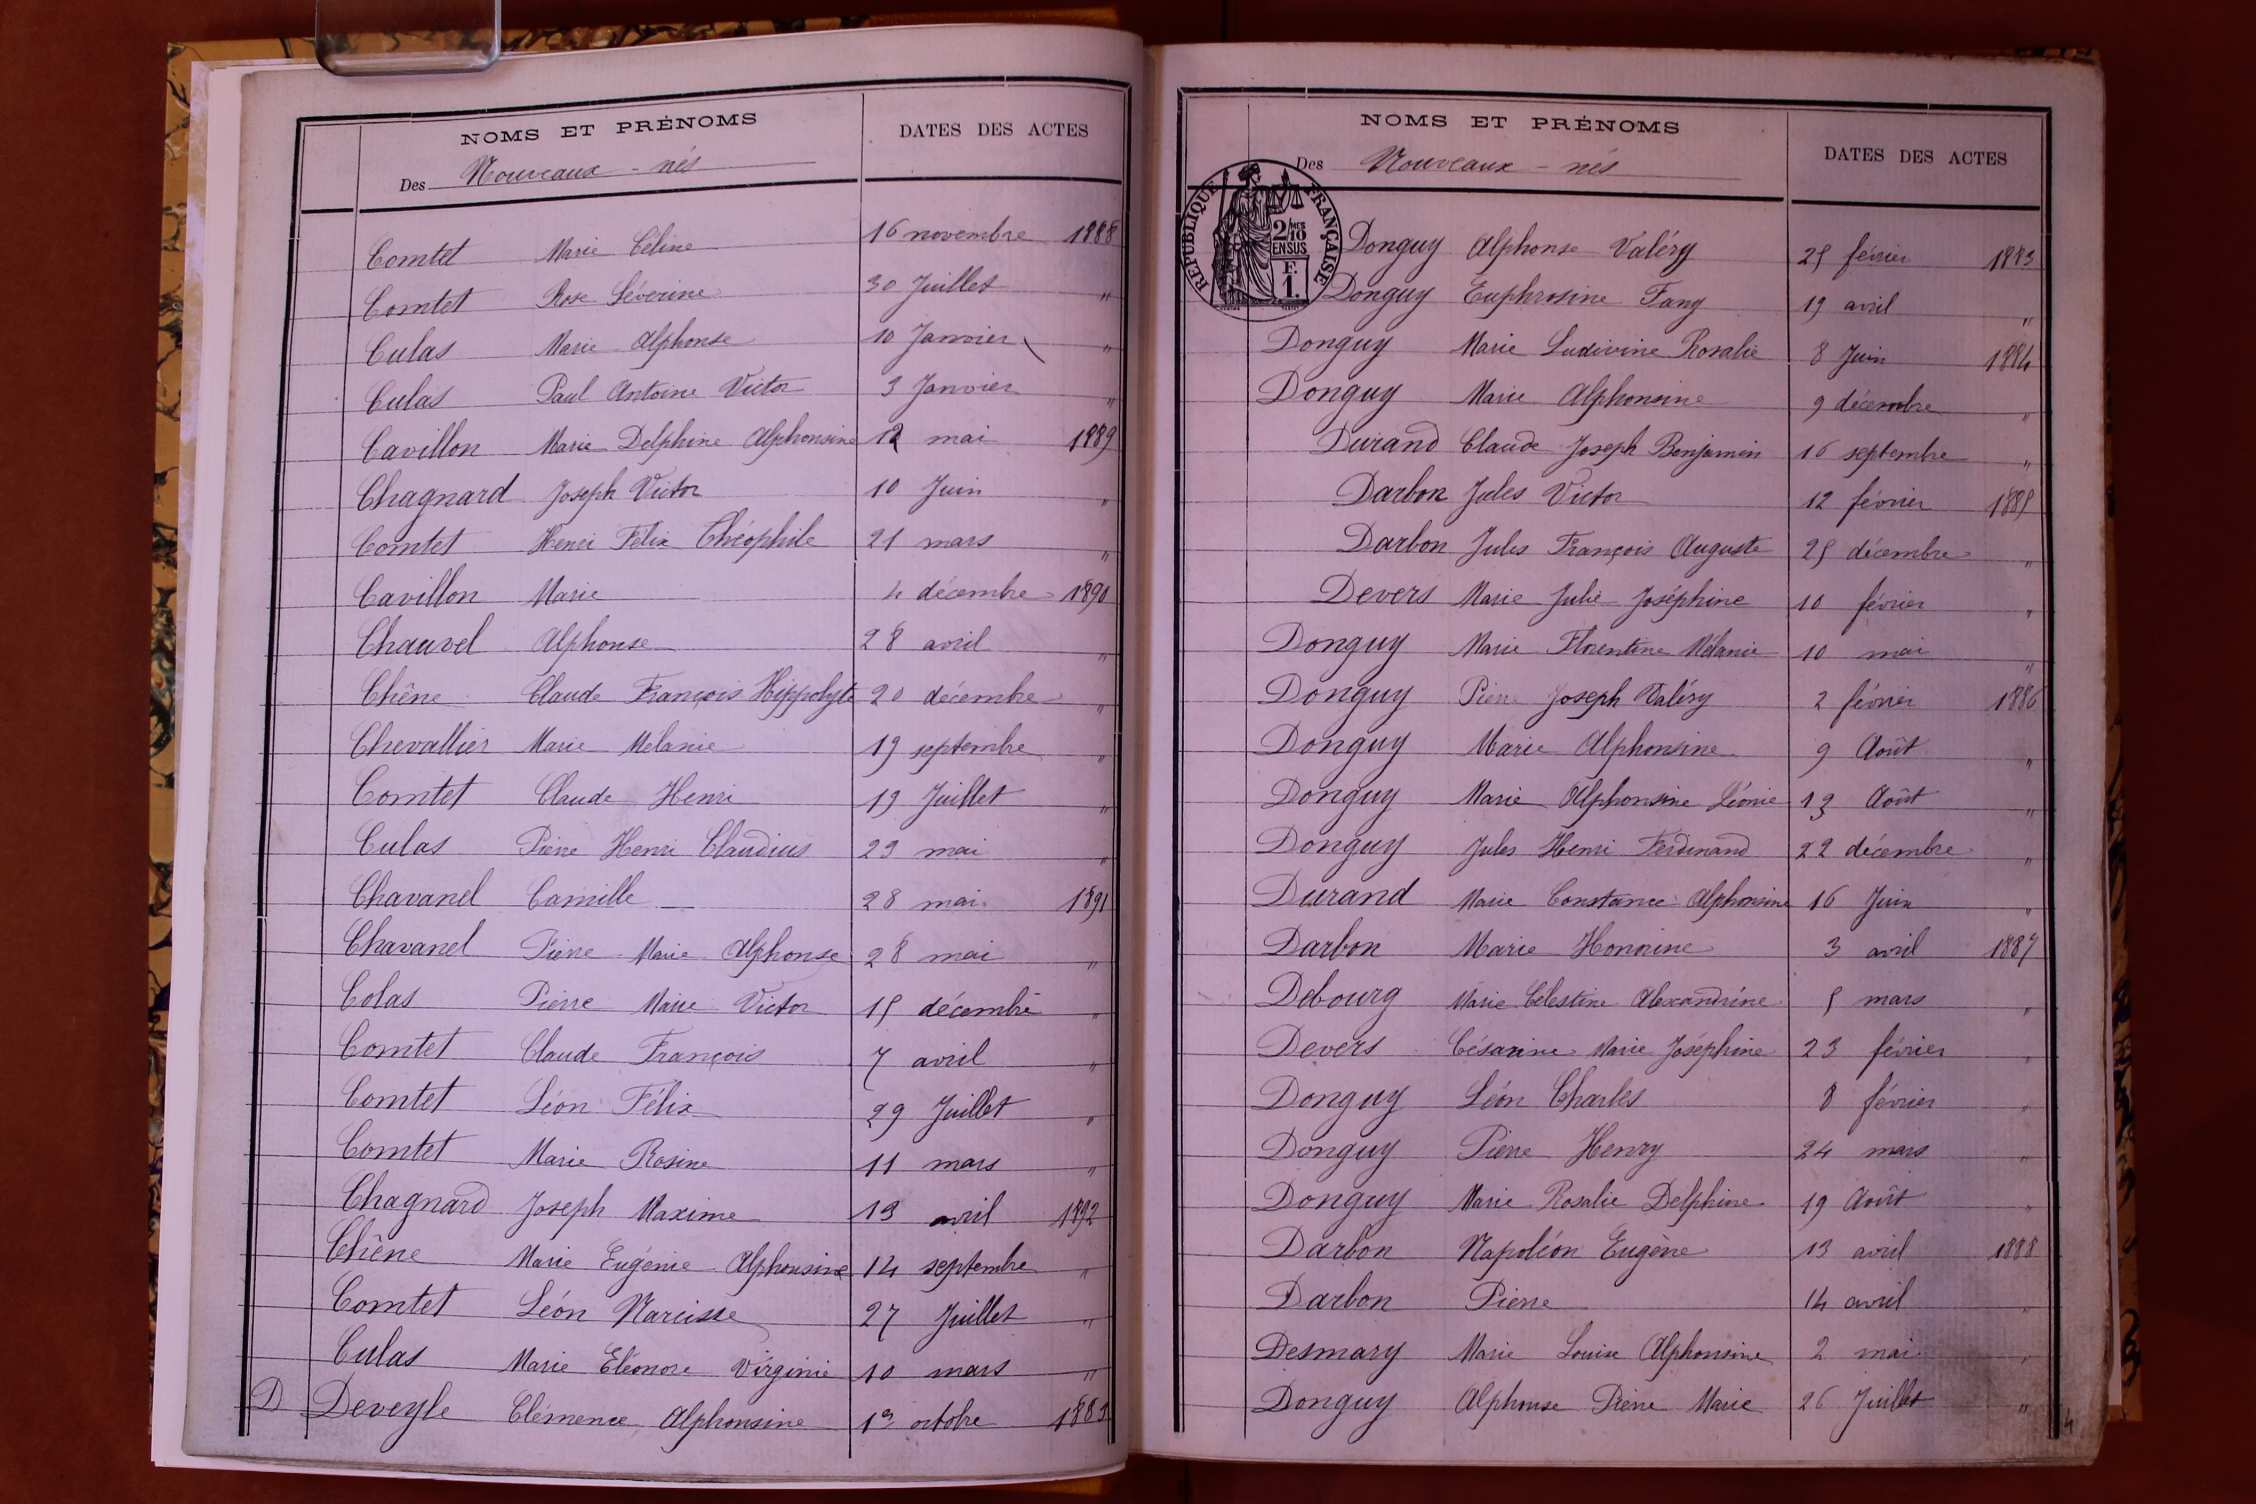 NOMS ET PRÉNOMS DATES DES ACTES
Des Nouveaux-nés
Comtet Marie Céline 16 novembre 1888
Comtet Rose Séverine 30 Juillet "
Culas Marie Alphonse 10 Janvier "
Culas Paul Antoine Victor 3 Janvier "
Cavillon Marie Delphine Alphonsine 12 mai 1889
Chagnard Joseph Victor 10 Juin "
Comtet Henri Félix Théophile 21 mars "
Cavillon Marie 4 décembre 1890
Chauvel Alphonse 28 avril "
Chêne Claude François Hippolyte 20 décembre "
Chevallier Marie Mélanie 19 septembre "
Comtet Claude Henri 19 Juillet "
Culas Pierre Henri Claudius 23 mai "
Chavanel Camille 28 mai 1891
Chavanel Pierre Marie Alphonse 28 mai "
Colas Pierre Marie Victor 15 décembre "
Comtet Claude François 7 avril "
Comtet Léon Félix 29 Juillet "
Comtet Marie Rosine 11 mars "
Chagnard Joseph Maxime 13 avril 1892
Chêne Marie Eugénie Alphonsine 14 septembre "
Comtet Léon Narcisse 27 Juillet "
Culas Marie Eléonore Virginie 10 mars "
D Deveyle Clémence Alphonsine 1er octobre 1883
NOMS ET PRÉNOMS DATES DES ACTES
Des Nouveaux-nés
RÉPUBLIQUE FRANÇAISE
2/10 MES
EN SUS
F.
1.
Donguy Alphonse Valéry 25 février 1883
Donguy Euphrosine Fany 19 avril "
Donguy Marie Ludivine Rosalie 8 Juin 1884
Donguy Marie Alphonsine 9 décembre "
Durand Claude Joseph Benjamin 16 septembre "
Darbon Jules Victor 12 février 1885
Darbon Jules François Auguste 25 décembre "
Devers Marie Julie Joséphine 10 février "
Donguy Marie Florentine Mélanie 10 mai "
Donguy Pierre Joseph Valéry 2 février 1886
Donguy Marie Alphonsine 9 Août "
Donguy Marie Alphonsine Léonie 13 Août "
Donguy Jules Henri Ferdinand 22 décembre "
Durand Marie Constance Alphonsine 16 Juin "
Darbon Marie Honorine 3 avril 1887
Debourg Marie Célestine Alexandrine 5 mars "
Devers Césarine Marie Joséphine 23 février "
Donguy Léon Charles 8 février "
Donguy Pierre Henry 24 mars "
Donguy Marie Rosalie Delphine 19 Août "
Darbon Napoléon Eugène 13 avril 1888
Darbon Pierre 14 avril "
Desmary Marie Louise Alphonsine 2 mai "
Donguy Alphonse Pierre Marie 26 Juillet "
4